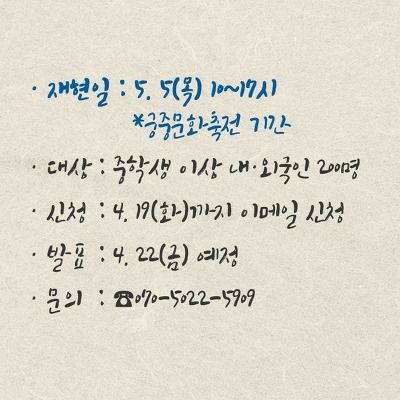 · 재현일 : 5. 5(목) 10~17시
*궁중문화축전 기간
· 대상 : 중학생 이상 내·외국인 200명
· 신청 : 4. 19(화)까지 이메일 신청
· 발표 : 4. 22(금) 예정
· 문의 : ☎070-5022-5909